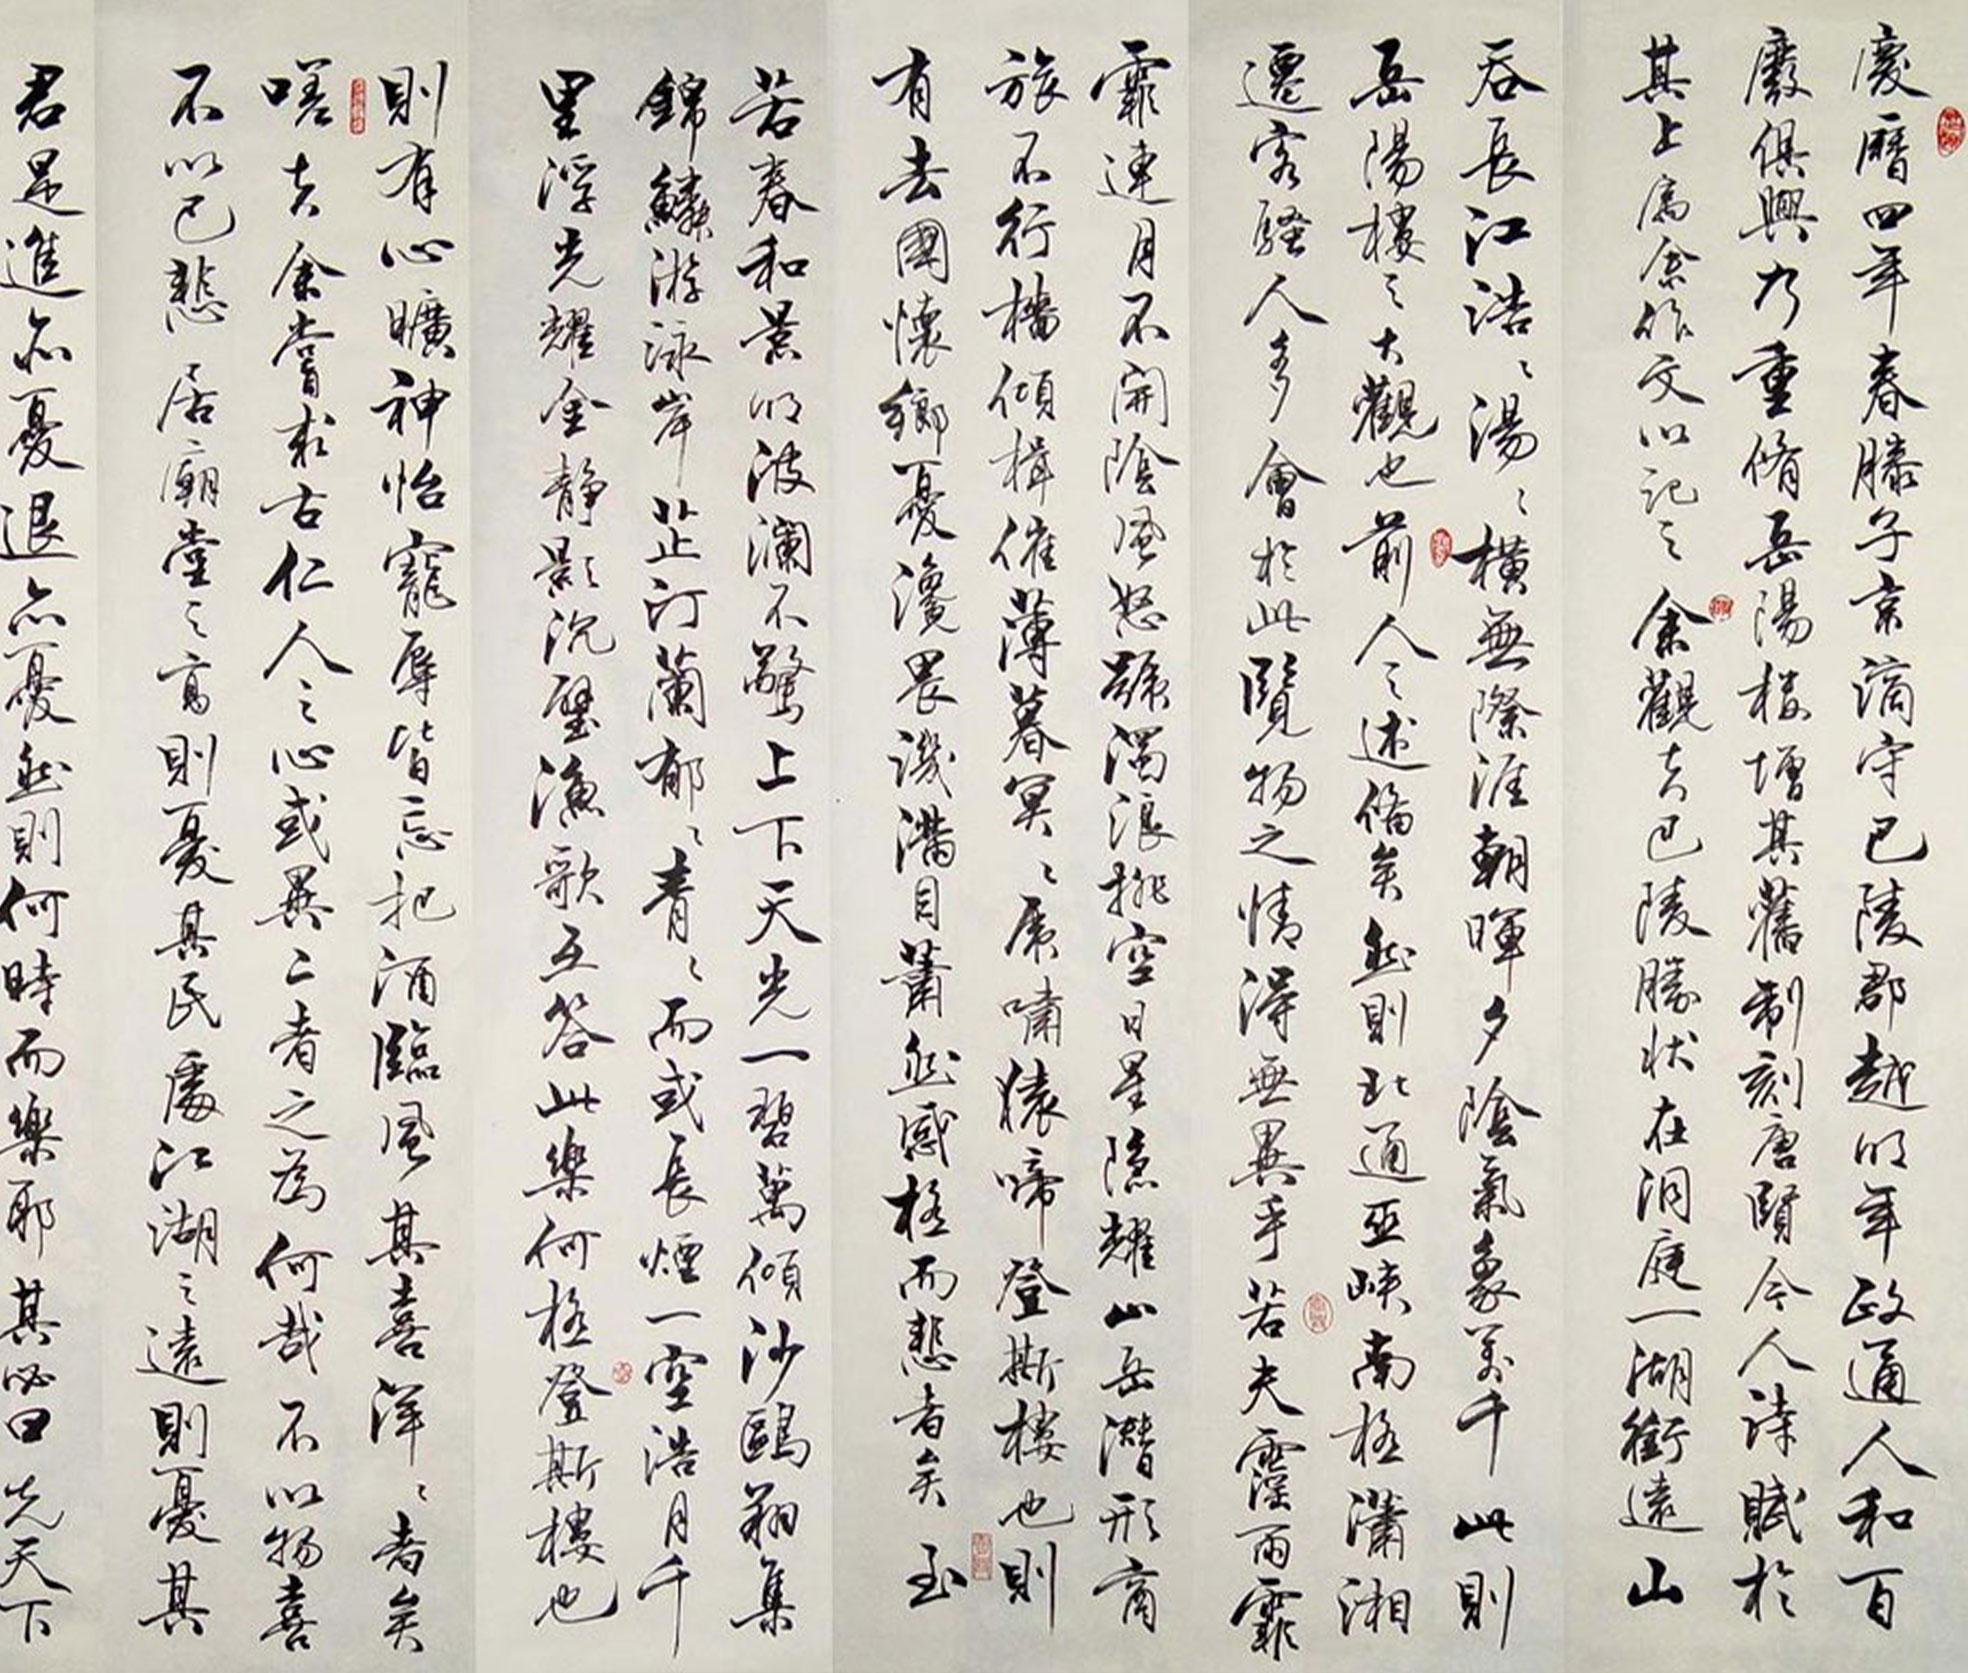 慶曆四年春滕子京謫守巴陵郡越明年政通人和百
廢俱興乃重脩岳陽樓增其舊制刻唐賢今人詩賦於
其上屬余作文以記之余觀夫巴陵勝狀在洞庭一湖銜遠山
吞長江浩〻湯〻橫無際涯朝暉夕陰氣象萬千此則
岳陽樓之大觀也前人之述備矣然則北通巫峽南極瀟湘
遷客騷人多會於此覽物之情得無異乎若夫霪雨霏
霏連月不開陰風怒號濁浪排空日星隱耀山岳潛形商
旅不行檣傾楫摧薄暮冥〻虎嘯猿啼登斯樓也則
有去國懷鄉憂讒畏譏滿目蕭然感極而悲者矣至
若春和景明波瀾不驚上下天光一碧萬傾沙鷗翔集
錦鱗游泳岸芷汀蘭郁〻青〻而或長煙一空浩月千
里浮光耀金靜影沉璧漁歌互答此樂何極登斯樓也
則有心曠神怡寵辱皆忘把酒臨風其喜洋〻者矣
嗟夫余嘗求古仁人之心或異二者之為何哉不以物喜
不以己悲居廟堂之高則憂其民處江湖之遠則憂其
君是進亦憂退亦憂然則何時而樂耶其必曰先天下